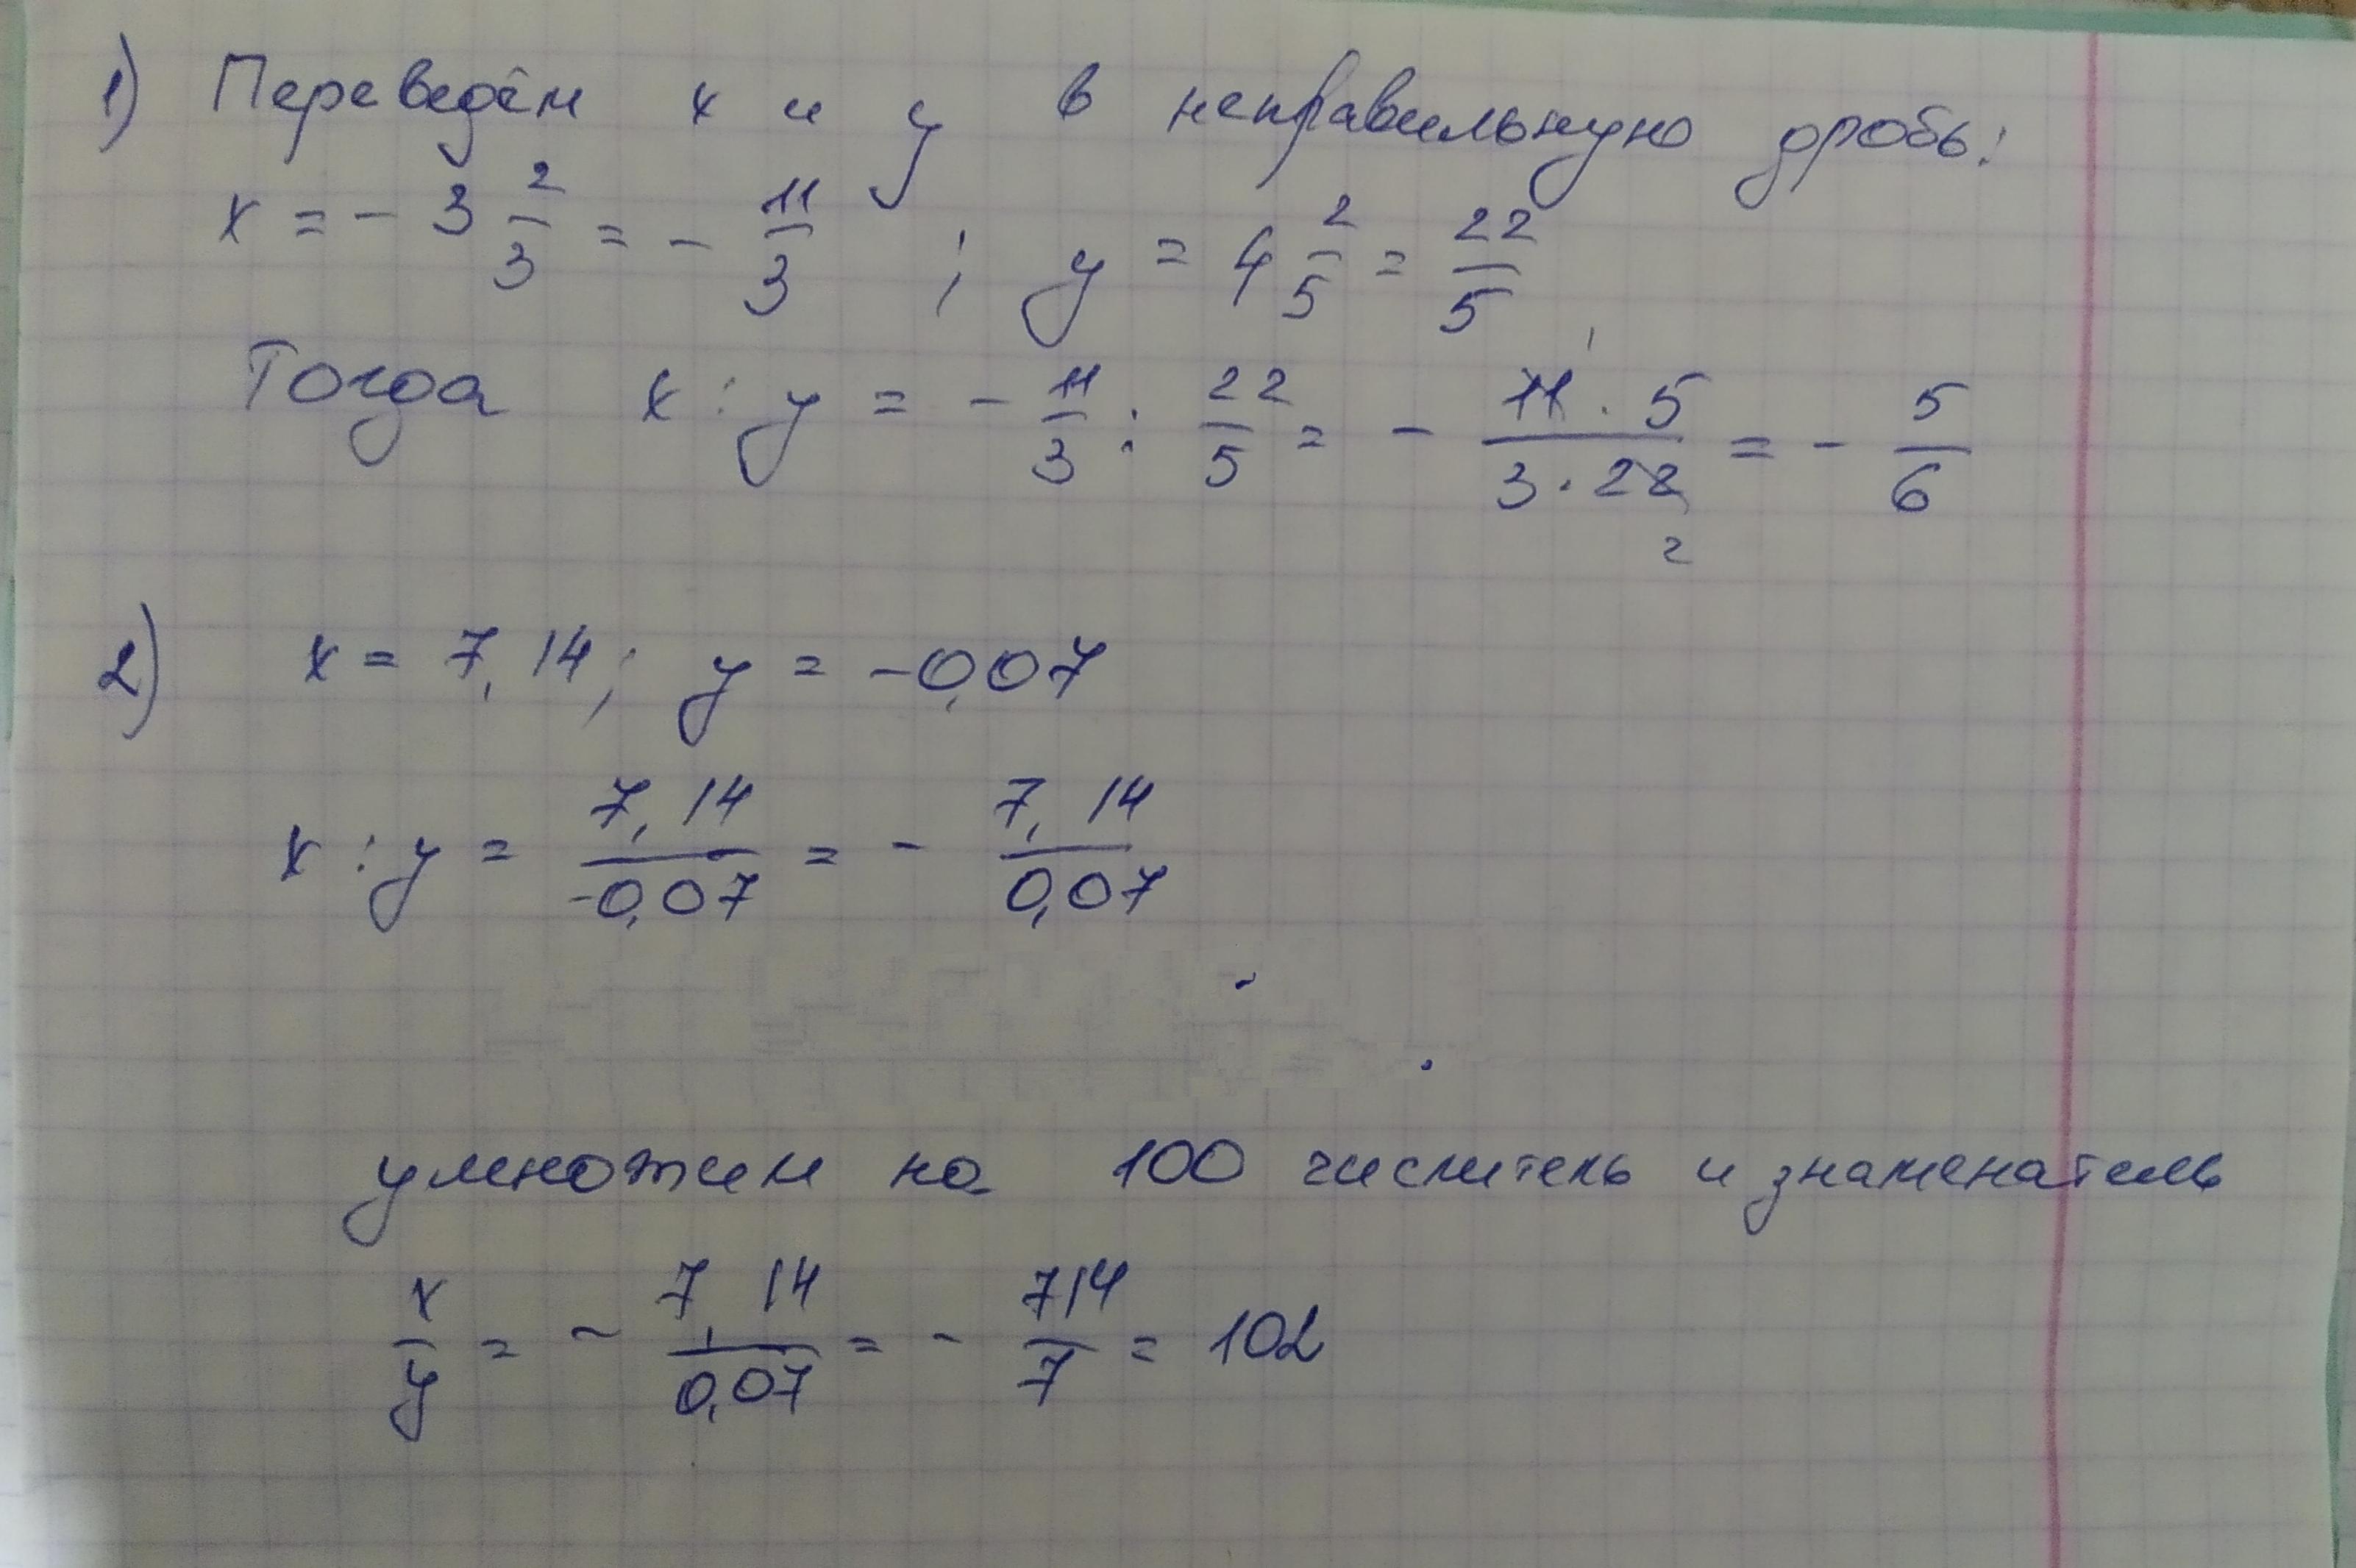 1) Переведём x и y в неправильную дробь:
x = - 3 2/3 = - 11/3 ; y = 4 2/5 = 22/5
Тогда x : y = - 11/3 : 22/5 = - 11 1 · 5 / 3 · 22 2 = - 5/6
2) x = 7,14; y = -0,07
x : y = 7,14 / -0,07 = - 7,14 / 0,07
умножим на 100 числитель и знаменатель
x/y = - 7,14 / 0,07 = - 714/7 = 102